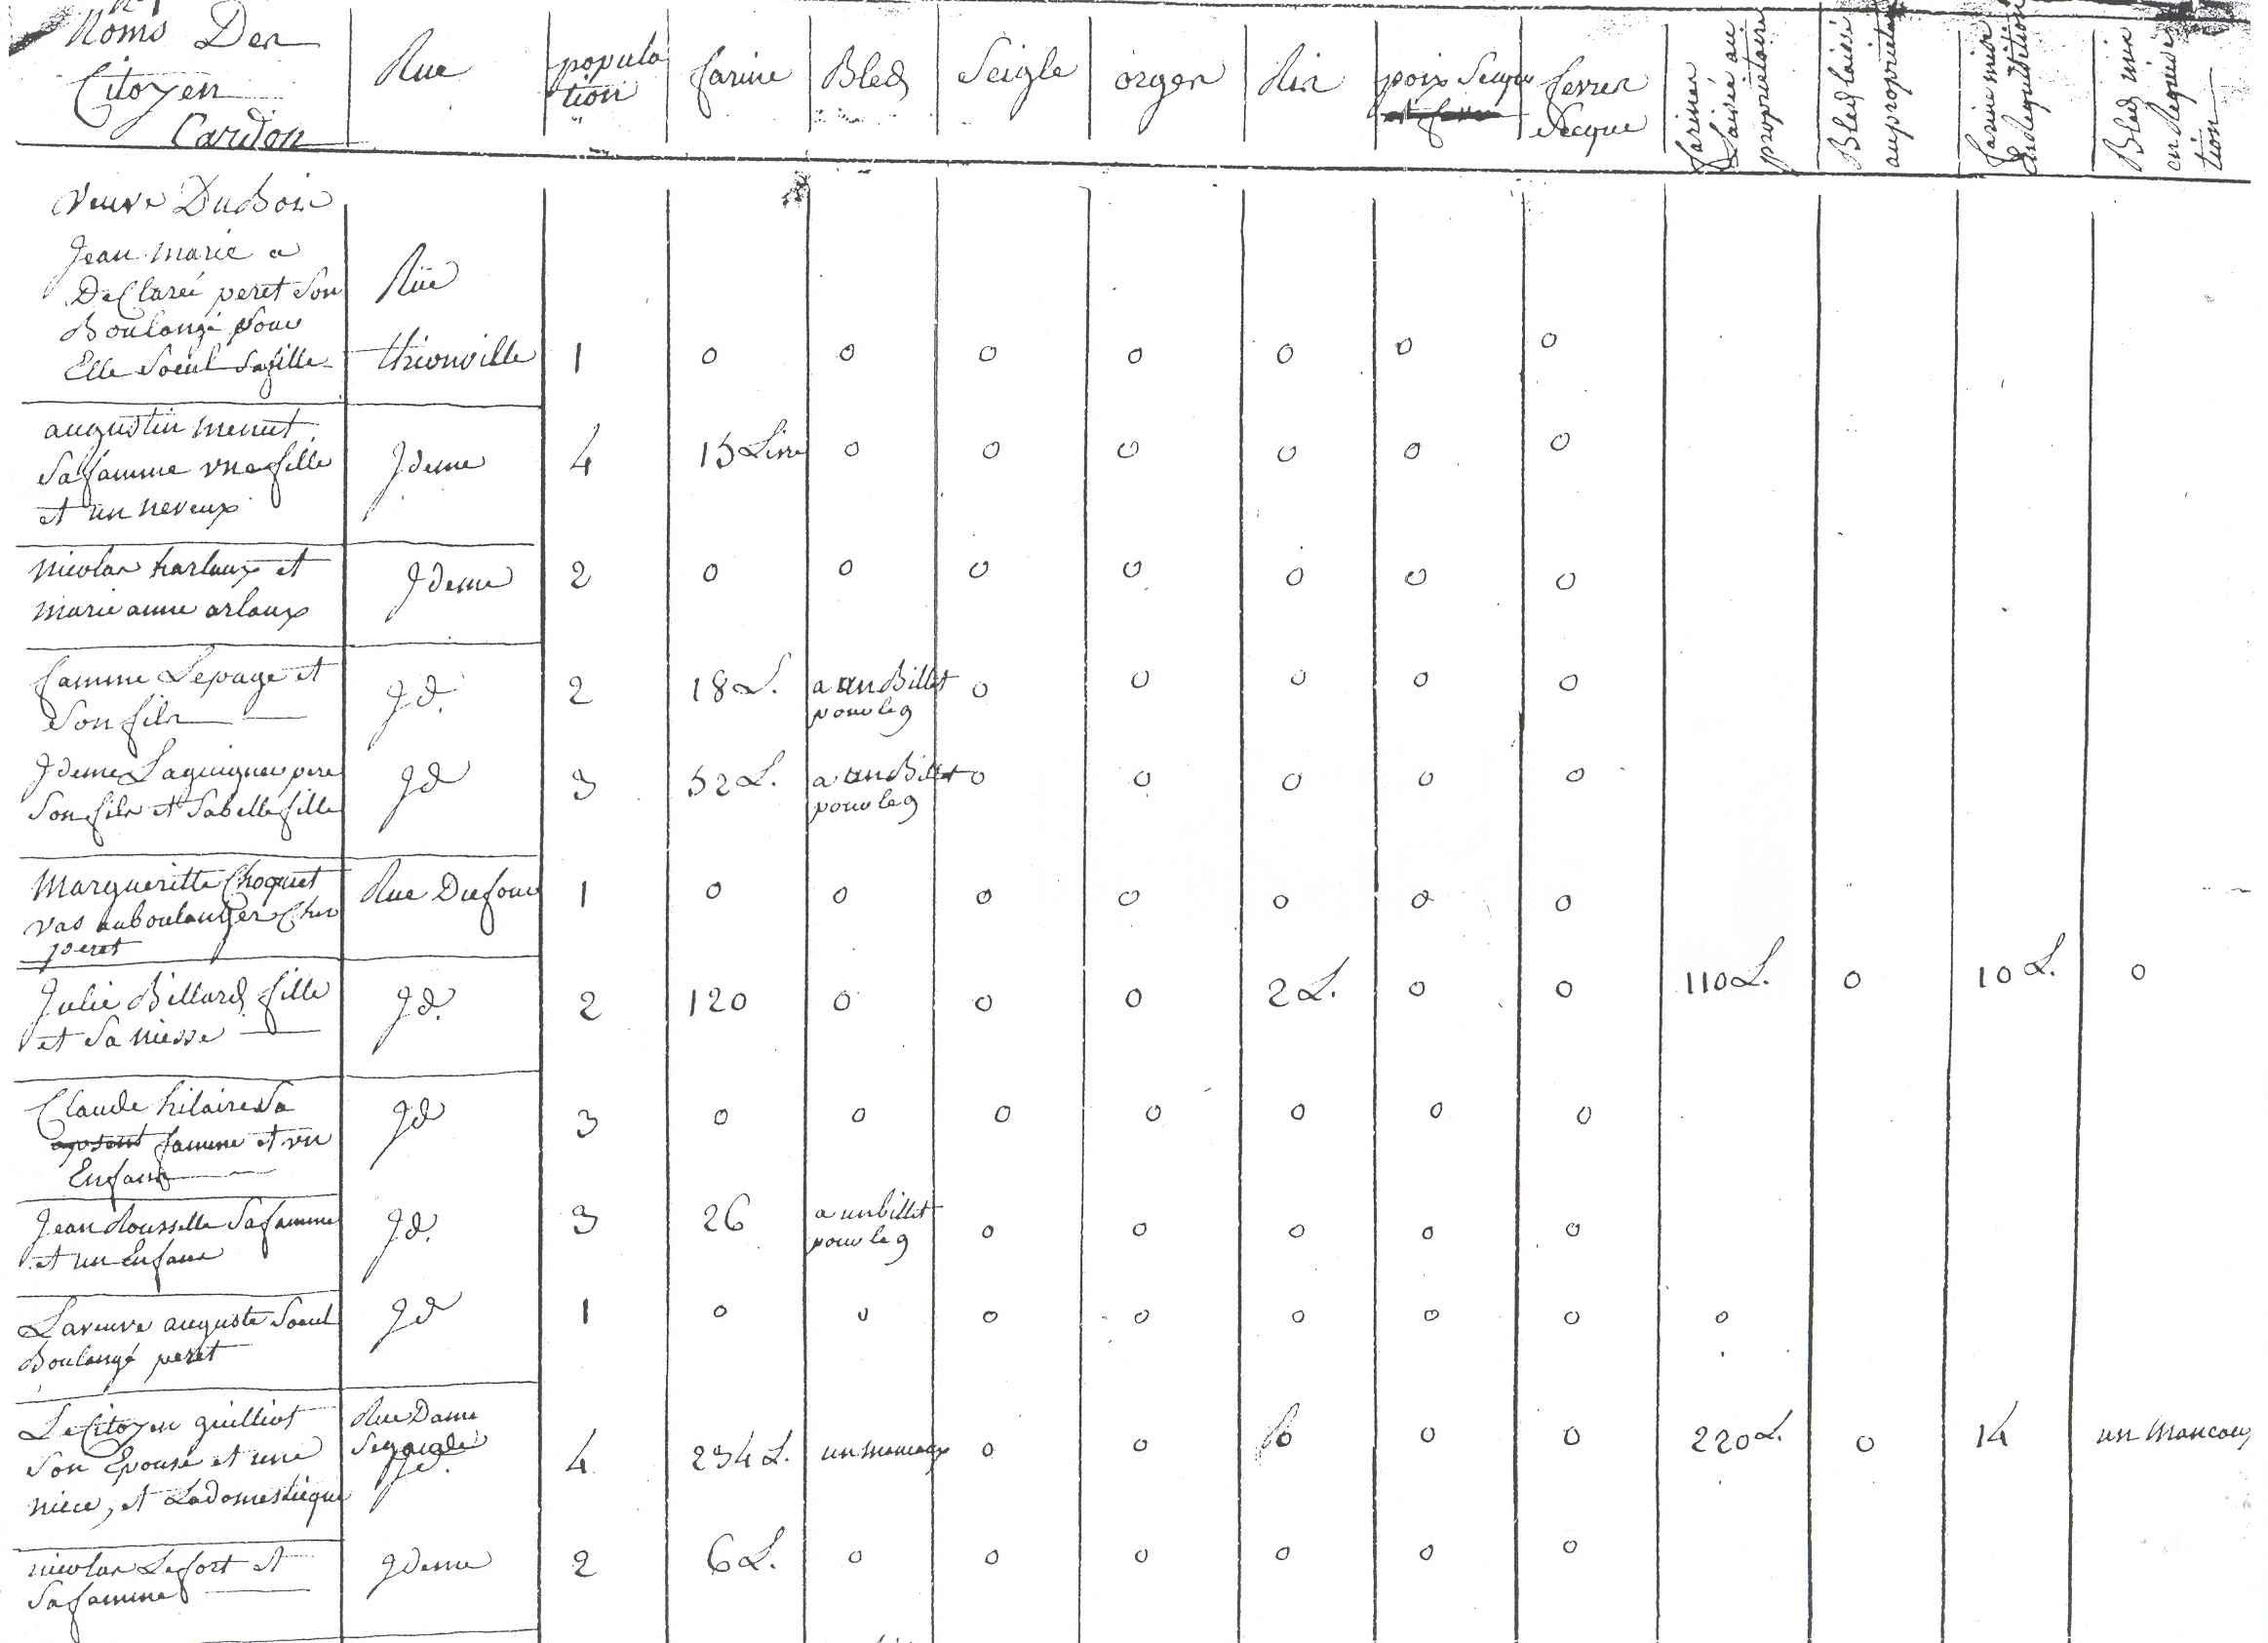 n° 1
Noms Des
Citoyen
Cardon
Rue
popula
tion
farine
Bled
Seigle
orges
Ris
poix Secque
et feves
fevres
Secque
farines
Laisée au
proprietaire
Bled laissé
au proprietaire
farine mise
En Requisition
Bled mis
en Requisi
tion
veuve DuBois
Jean marie a
DeClareé peret Son
Boulangé pour
Elle Soeul Safille
Rüe
thionville 1 o o o o o o o
augustin menut
Safamme une fille
et un neveux
Jdeme 4 15 Livre o o o o o o
nicolas harlaux et
marie anne arlaux
Jdeme 2 o o o o o o o
famme Lepage et
Son fils
Jd. 2 18 L. a un Billet
pour le 9
o o o o o
Jdeme Laguigner pere
Son fils et Sabellefille
Jd 3 52 L. a un Billet
pour le 9
o o o o o
Margueritte Choquet
vas au boulanger Ches
peret
Rue Dufour 1 o o o o o o o
Julie Billard fille
et Sa niesse
Jd. 2 120 o o o 2 L. o o 110 L. o 10 L. o
Claude hilaire Sa
famme et un
Enfant
Jd 3 o o o o o o o
Jean Rousselle Safamme
et un Enfant
Jd. 3 26 a un billet
pour le 9
o o o o o
La veuve auguste Soeul
Boulangé peret
Jd 1 o o o o o o o o
Le Citoyen guilliot
Son Epouse et une
niece, et Ladomestique
Rue Dame
Segogle
Jd.
4 234 L. un mancaux o o o o o 220 L. o 14 un mancaux
nicolas Lefort et
Safamme
Jdeme 2 6 L. o o o o o o